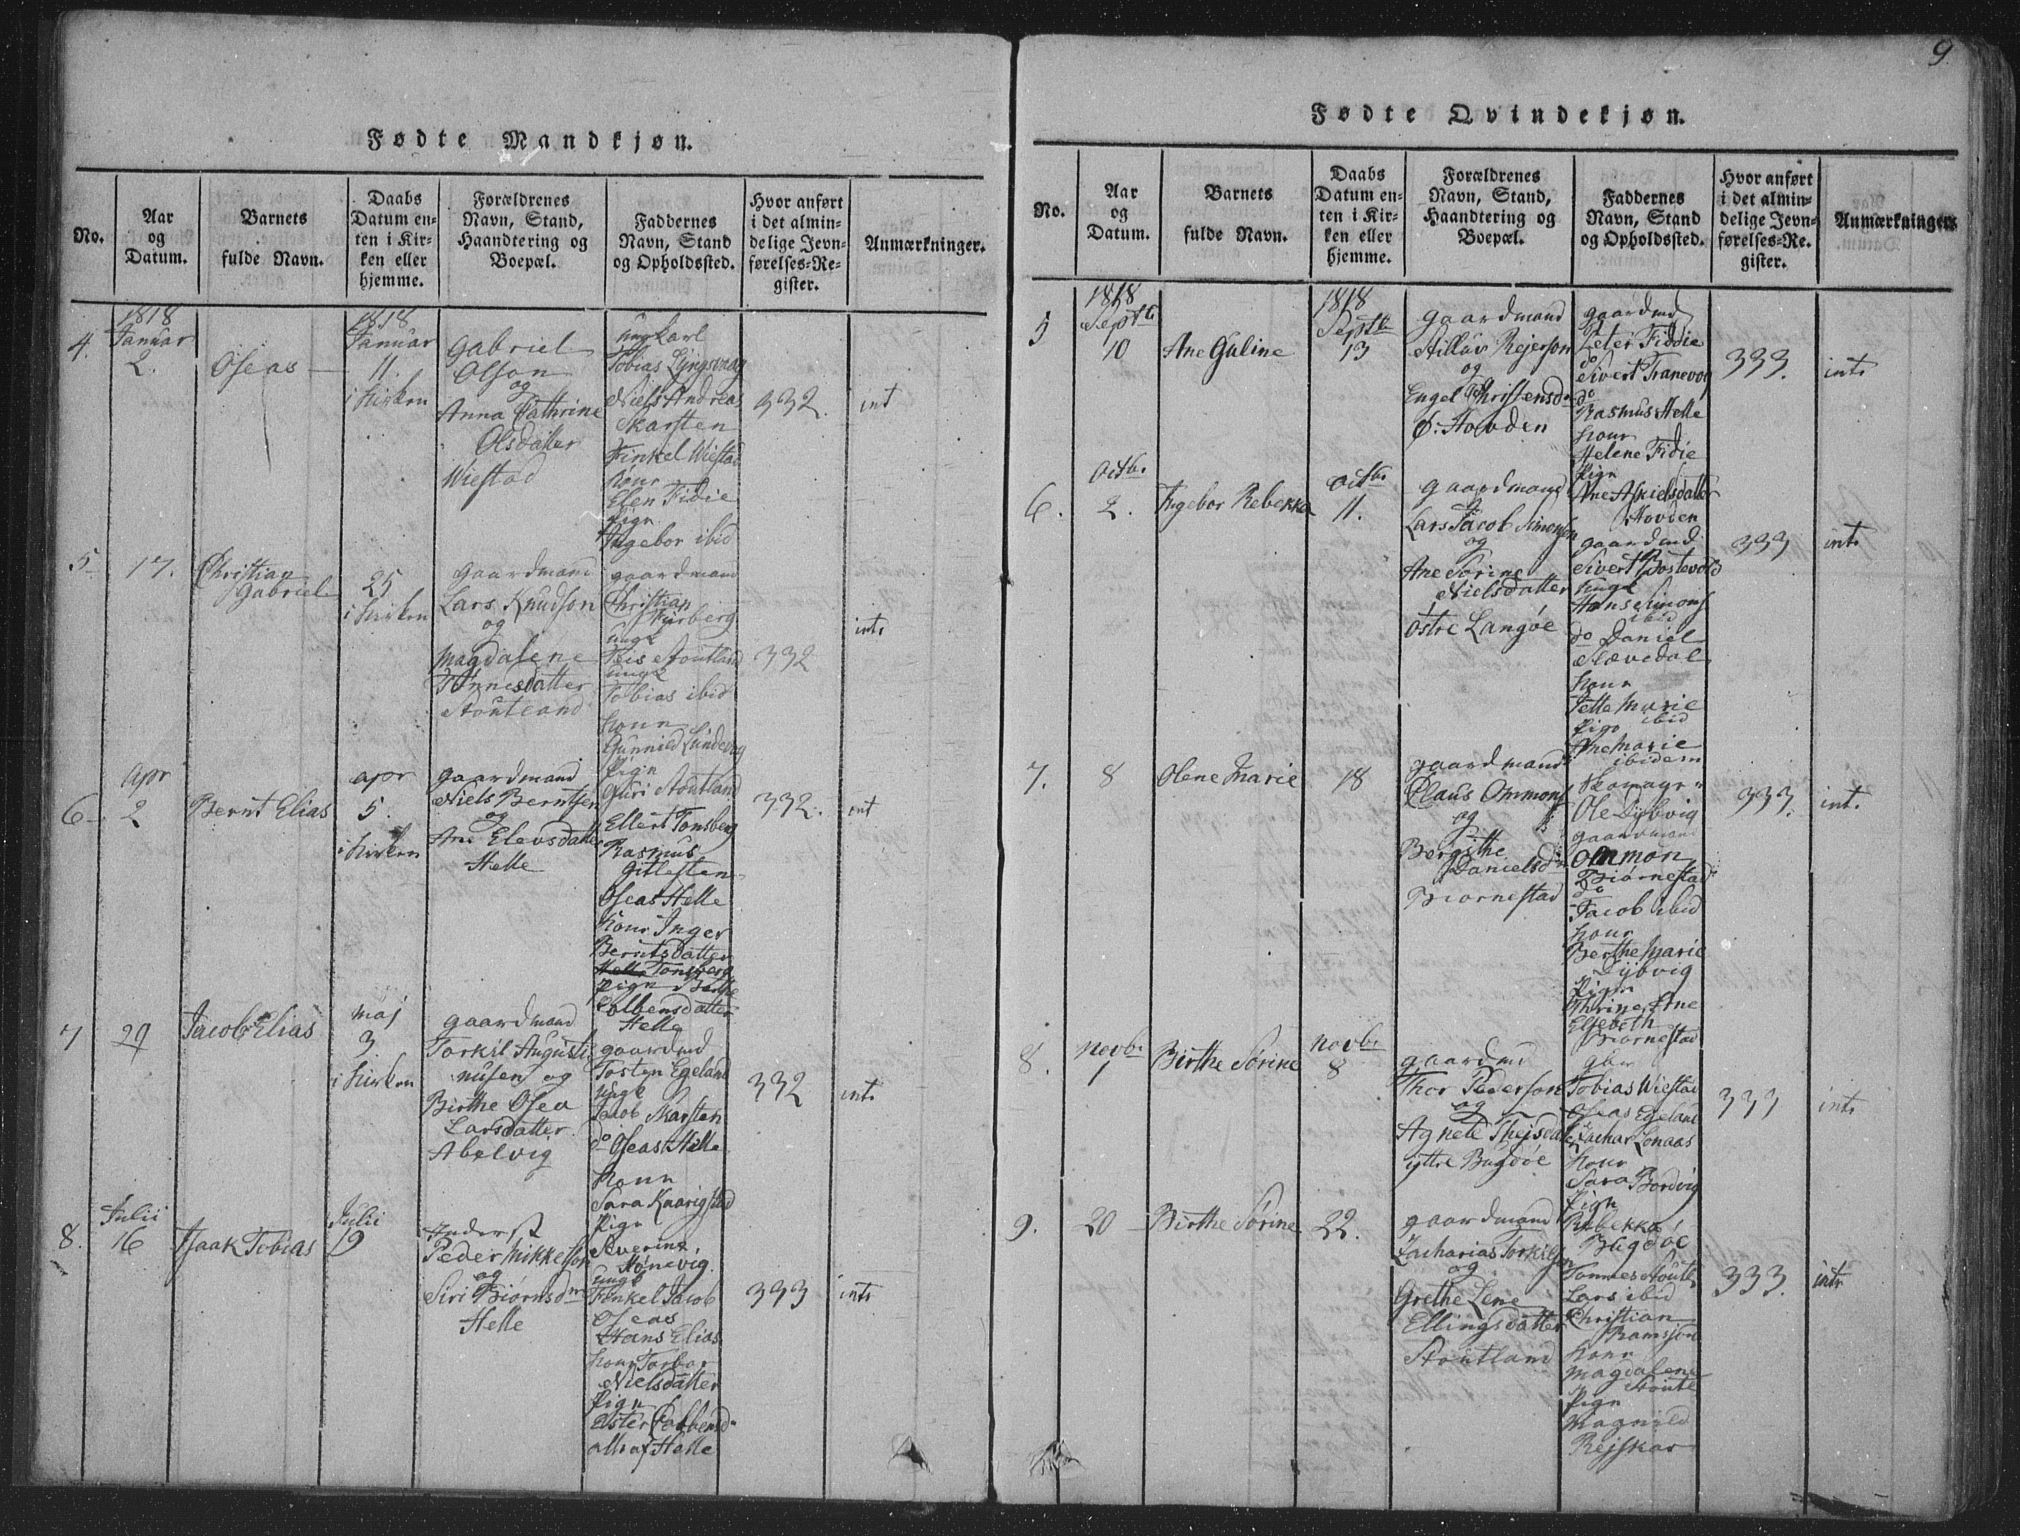 9.
Fødte Mandkjøn.
No.
Aar
og
Datum.
Barnets
fulde Navn.
Daabs
Datum en-
ten i Kir-
ken eller
hjemme.
Forældrenes
Navn, Stand,
Haandtering og
Boepæl.
Faddernes
Navn, Stand
og Opholdssted.
Hvor anført
i det almin-
delige Jevn-
førelses-Re-
gister.
Anmærkninger.
4.
1818
Januar
2.
Oseas
1818
Januar
11.
i Kirken
Gabriel
Olson
og
Anna Cathrine
Olsdatter
Wiestad
ungkarl
Tobias Lyngsvaag
Niels Andreas
Skarsten
Finkel Wiestad
Konr
Elen Fidie
Pign
Ingebor ibid
332.
int
5
17.
Christian
Gabriel
25
i Kirken
gaardmand
Lars Knudson
og
Magdalene
Tønnesdatter
Stoutland
gaardmand
Christian
ungk
Teis Stoutland
ungk
Tobias ibid
Konn
Gunnild Lundevog
Pign
Guri Stoutland
332
int
6
apr
2
Bernt Elias
apr
5.
i Kirken
gaardmand
Niels Berntsen
og
Ane Elevsdatte
Helle
Ellert Tonsberg
Rasmus
Gitlesten
Oseas Helle
Konr Inger
Berntsdatter
Tonsberg
Pign Berthe
Colbensdatter
Helle
332.
int
7
29
Jacob Elias
Maj
3.
i Kirken
gaardmand
Torkil Augusti
nusen og
Birthe Osea
Larsdatter
Abelvig
gaardmd
Tosten Egeland
ungk
Jacob Skarsten
do Oseas Helle
Konn
Sara Kaarigstad
Pign
Severine
Stønevig.
332
int
8.
Julii
16
Isaak Tobias
Julii
19
Inderst
Peder Mikkelson
og
Siri Biørnsdr
Helle
ungk
Finkel Jacob
Oseas
Hans Elias
Konr Torbor
Nielsdatter
Pign
Ester Cobbensd
alle af Helle
333
int
Fødte Qvindekjøn.
No.
Aar
og
Datum.
Barnets
fulde Navn.
Daabs
Datum en-
ten i Kir-
ken eller
hjemme.
Forældrenes
Navn, Stand,
Haandtering og
Boepæl.
Faddernes
Navn, Stand
og Opholdssted.
Hvor anført
i det almin-
delige Jevn-
førelses-Re-
gister.
Anmærkninger.
5
1818
Septb
10
Ane Guline
1818
Septb
13
gaardmand
Stillav Rejerson
og
Engel Thrissensdr
Ø. Hovden
gaardmd
Peter Fiddie
do
Sivert Tranevog
do
Rasmus Helle
Konr
Helene Fidie
Pign
Ane Askielsdatter
Hovden
333.
int
6.
Octb.
2.
Ingebor Rebekka
Octb.
11.
gaardmand
Lars Jacob Simonsen
og
Ane Sørine
Nielsdatter
Østre Langøe
gaardmd
Sivert Bostevold
Ungk
Hans Simons
ibid
do Daniel
Slævedal
Konr
Jelle Marie
ibid
Pign
Ane Marie
ibidem
333
int
7.
8
Olene Marie
18
gaardmand
Claus Ommons
og
Bergithe
Danielsdr
Biørnestad
Skomagr
Ole Dybvig
gaardmand
Ommon
Biørnestad
do
Jacob ibid
Konr
Berthe Marie
Dybvig
Pign
Thrine, Ane
Elsebeth
Biørnestad
333.
int
8.
Novb.
1
Birthe Sørine
Novb.
8
gaardmd
Thor Pederson
og
Agnete Theisdat
yttre Bugdøe
gbr
Tobias Wiestad
Oseas Egeland
Zachar Lonaas
Konr
Sara Bordvig
Pign
Rebekka
Bugdøe
333
int
9.
20
Birthe Sørine
22.
gaardmand
Zacharias Torkilsen
og
Grethe Lene
Ellingsdatter
Stoutland
Tonnes Stoutl
Lars ibid
Christian
Ramsson
Konr
Magdalene
Stoutl
Pign
Magnild
Rejskar
333.
int